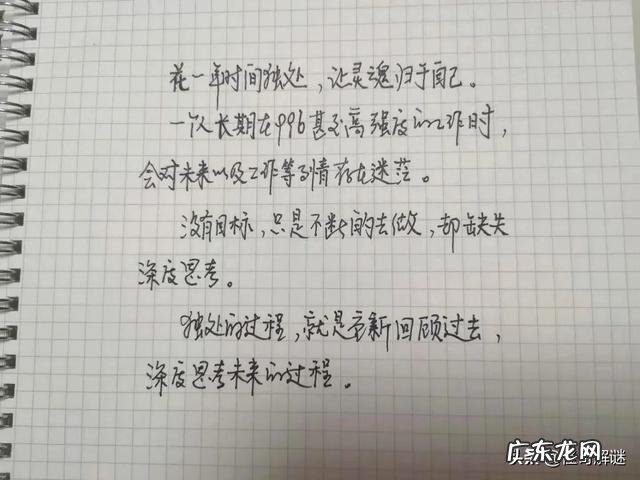 花一年时间独处，让灵魂归于自己。
一个人长期在996甚至高强度的工作时，
会对未来以及工作等事情存在迷茫。
没有目标，只是不断的去做，却缺失
深度思考。
独处的过程，就是重新回顾过去，
深度思考未来的过程。
广东龙网